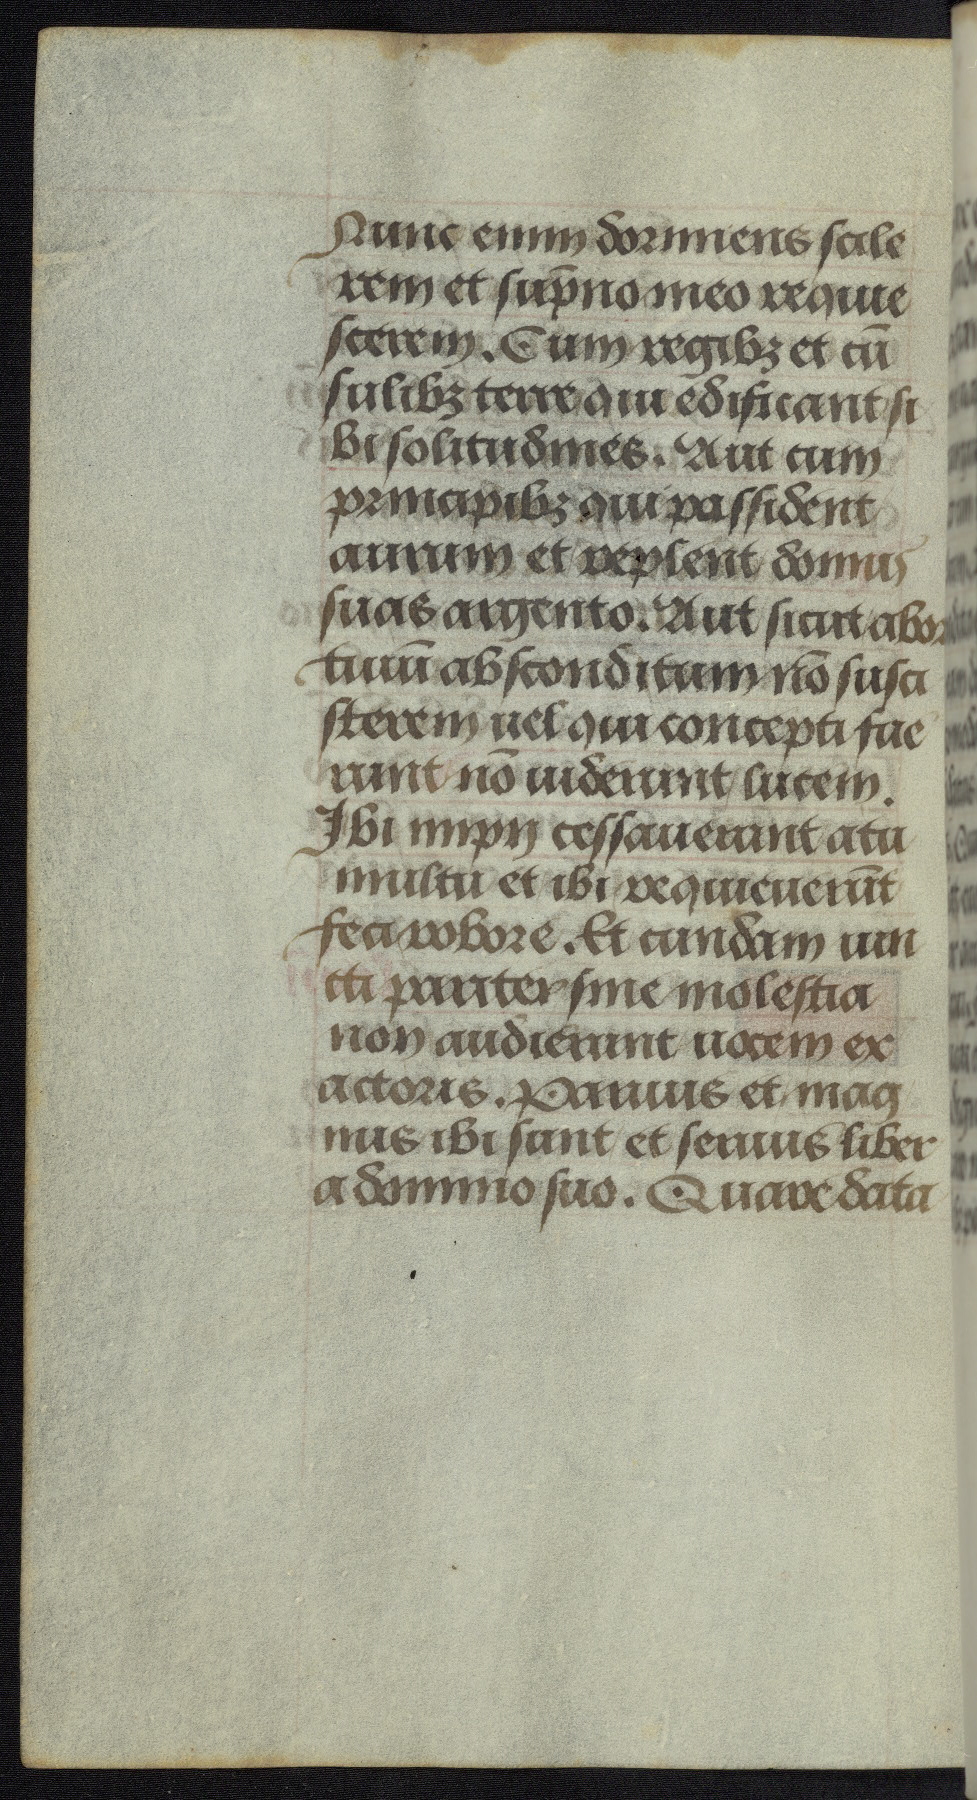 Nunc enim dormiens scile
rem et sup̄no meo requie
scerem. Cum regibꝫ et cū
sulibꝫ terre qui edificant si
bi solitudines. Aut cum
principibꝫ qui possident
aurum et replent domus
suas argento. Aut sicut abor
tiuū absconditum nō susci
sterem uel qui concepti fue
runt nō uiderunt lucem.
Ibi impij cessauerunt atu
multu et ibi requieuerūt
feci robore. Et cundam uin
cti pariter sine molestia
non audierunt uocem ex
actoris. Paruus et mag
nus ibi sunt et seruus liber
a domino suo. Quare data